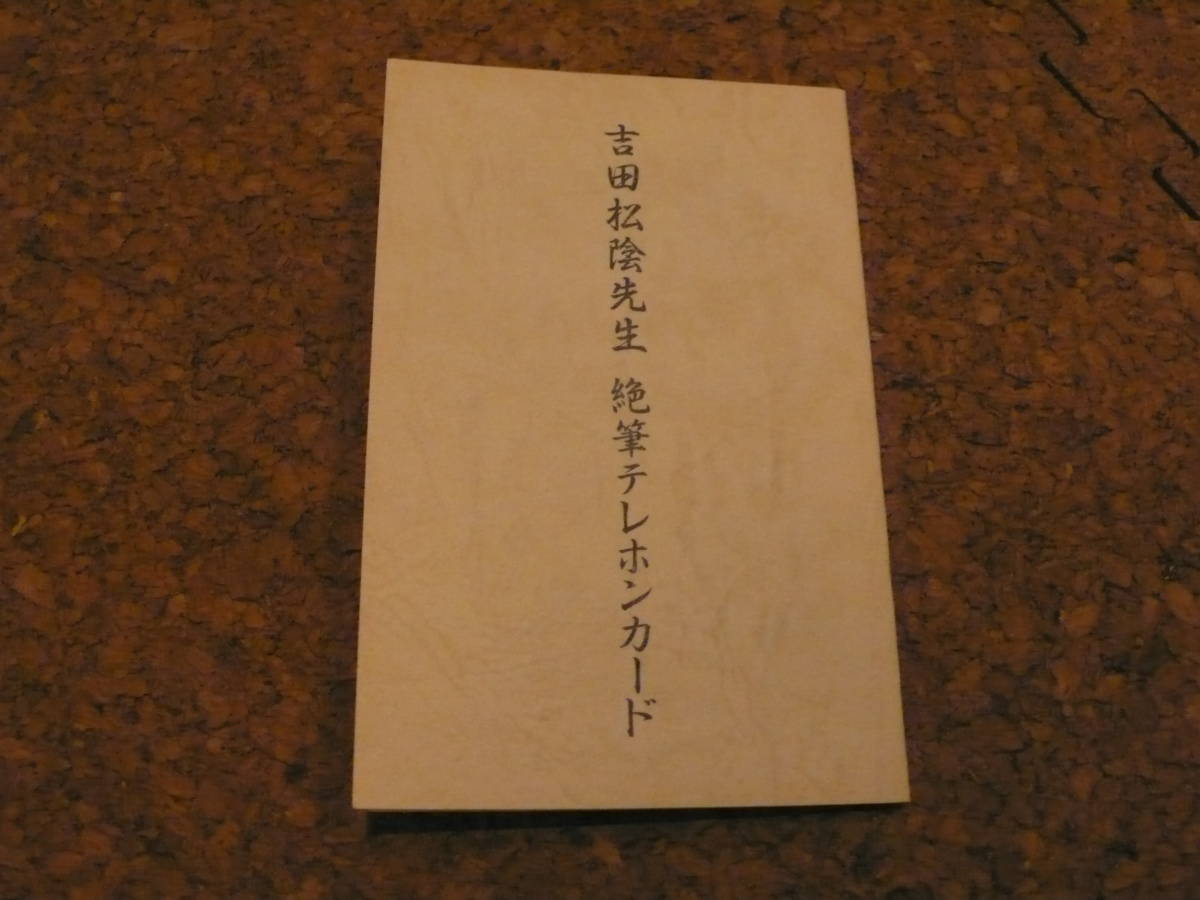 吉田松陰先生 絶筆テレホンカード